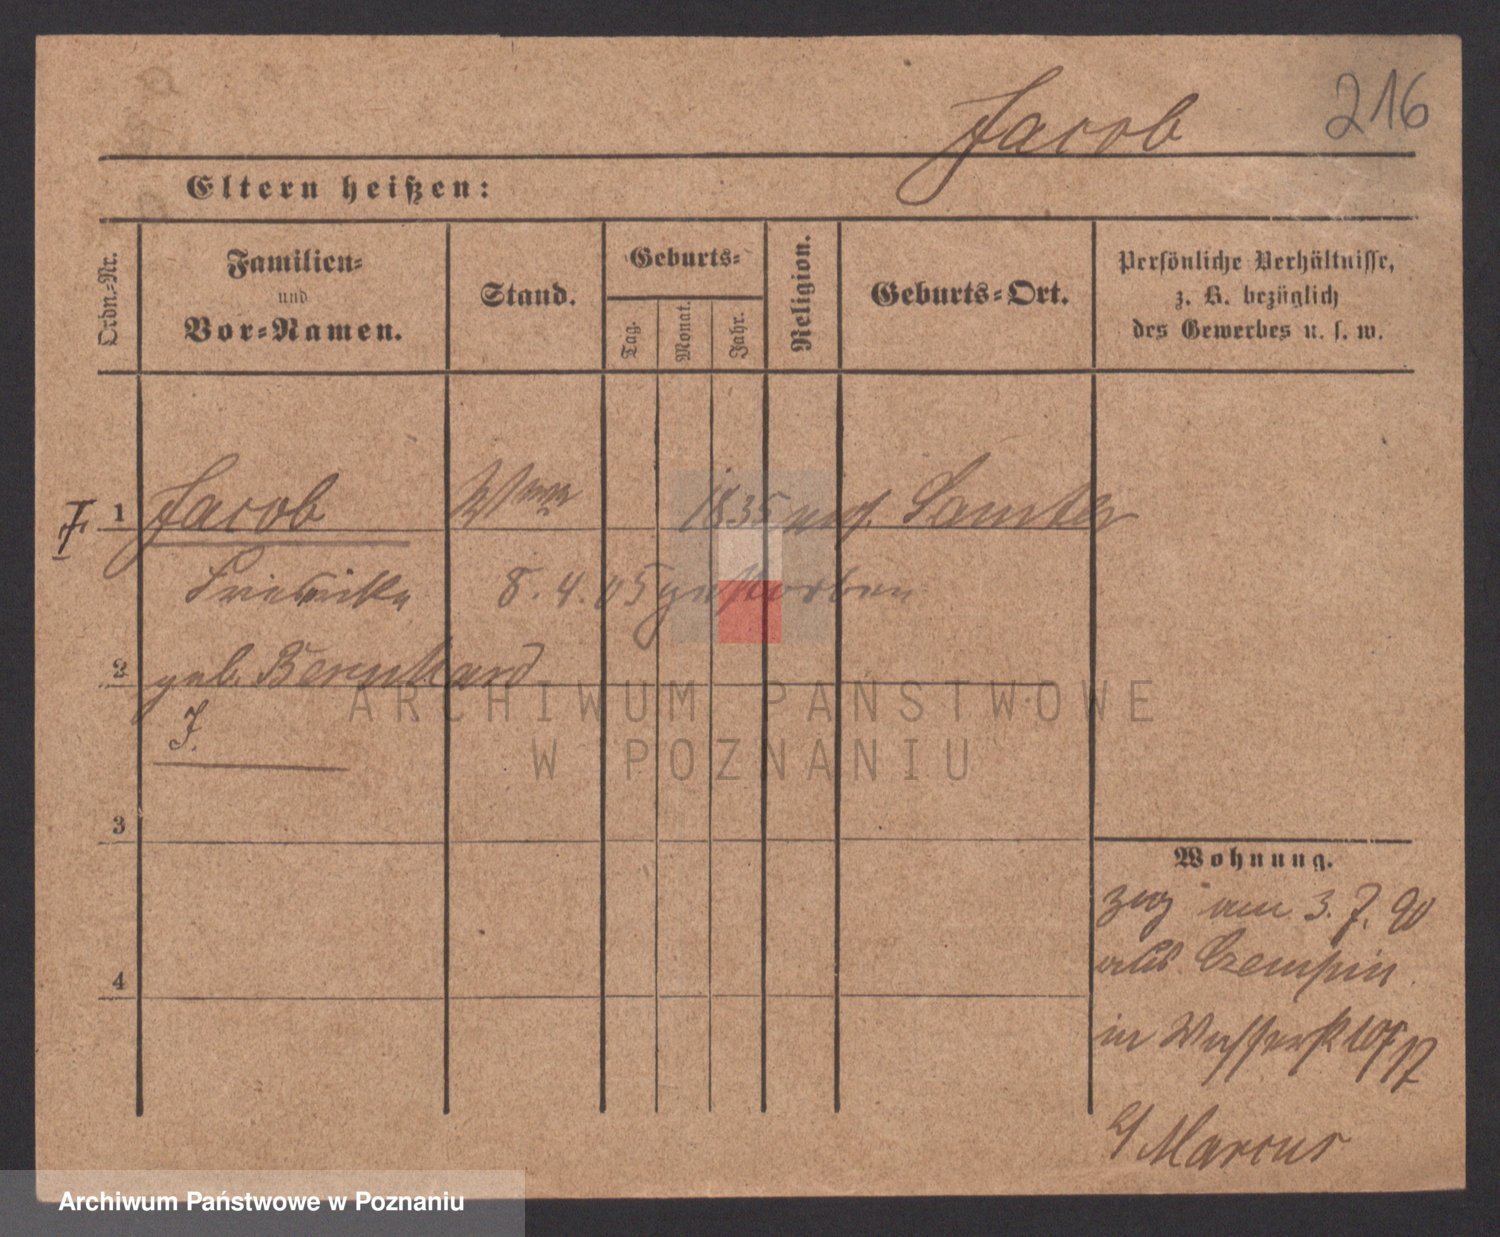 216
Jacob
Eltern heißen:
Ordn.-Nr.
Familien-
und
Vor-Namen.
Stand.
Geburts-
Tag.
Monat.
Jahr.
Religion.
Geburts-Ort.
Persönliche Verhältnisse,
z. B. bezüglich
des Gewerbes u. s. w.
1 Jacob Wwe 1835 mos. Samter
Friederike 8.4.05 gestorben
2 geb. Bernhard
J.
3
4
Wohnung.
zug am 3.7.90
aus Czempin
in Wasserstr
Marcus
ARCHIWUM PAŃSTWOWE
W POZNANIU
Archiwum Państwowe w Poznaniu